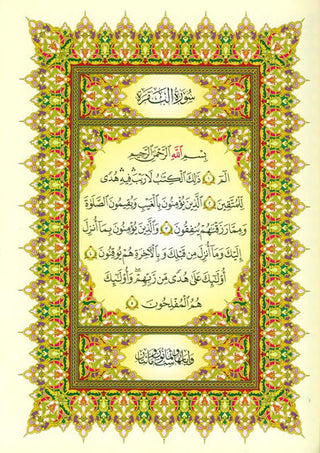 سُورَةُ الْبَقَرَةِ
بِسْمِ اللَّهِ الرَّحْمَٰنِ الرَّحِيمِ
الٓمٓ ۝١ ذَٰلِكَ الْكِتَٰبُ لَا رَيْبَ ۛ فِيهِ ۛ هُدًى
لِّلْمُتَّقِينَ ۝٢ الَّذِينَ يُؤْمِنُونَ بِالْغَيْبِ وَيُقِيمُونَ الصَّلَوٰةَ
وَمِمَّا رَزَقْنَٰهُمْ يُنفِقُونَ ۝٣ وَالَّذِينَ يُؤْمِنُونَ بِمَا أُنزِلَ
إِلَيْكَ وَمَا أُنزِلَ مِن قَبْلِكَ وَبِالْآخِرَةِ هُمْ يُوقِنُونَ ۝٤
أُولَٰئِكَ عَلَىٰ هُدًى مِّن رَّبِّهِمْ ۖ وَأُولَٰئِكَ
هُمُ الْمُفْلِحُونَ ۝٥